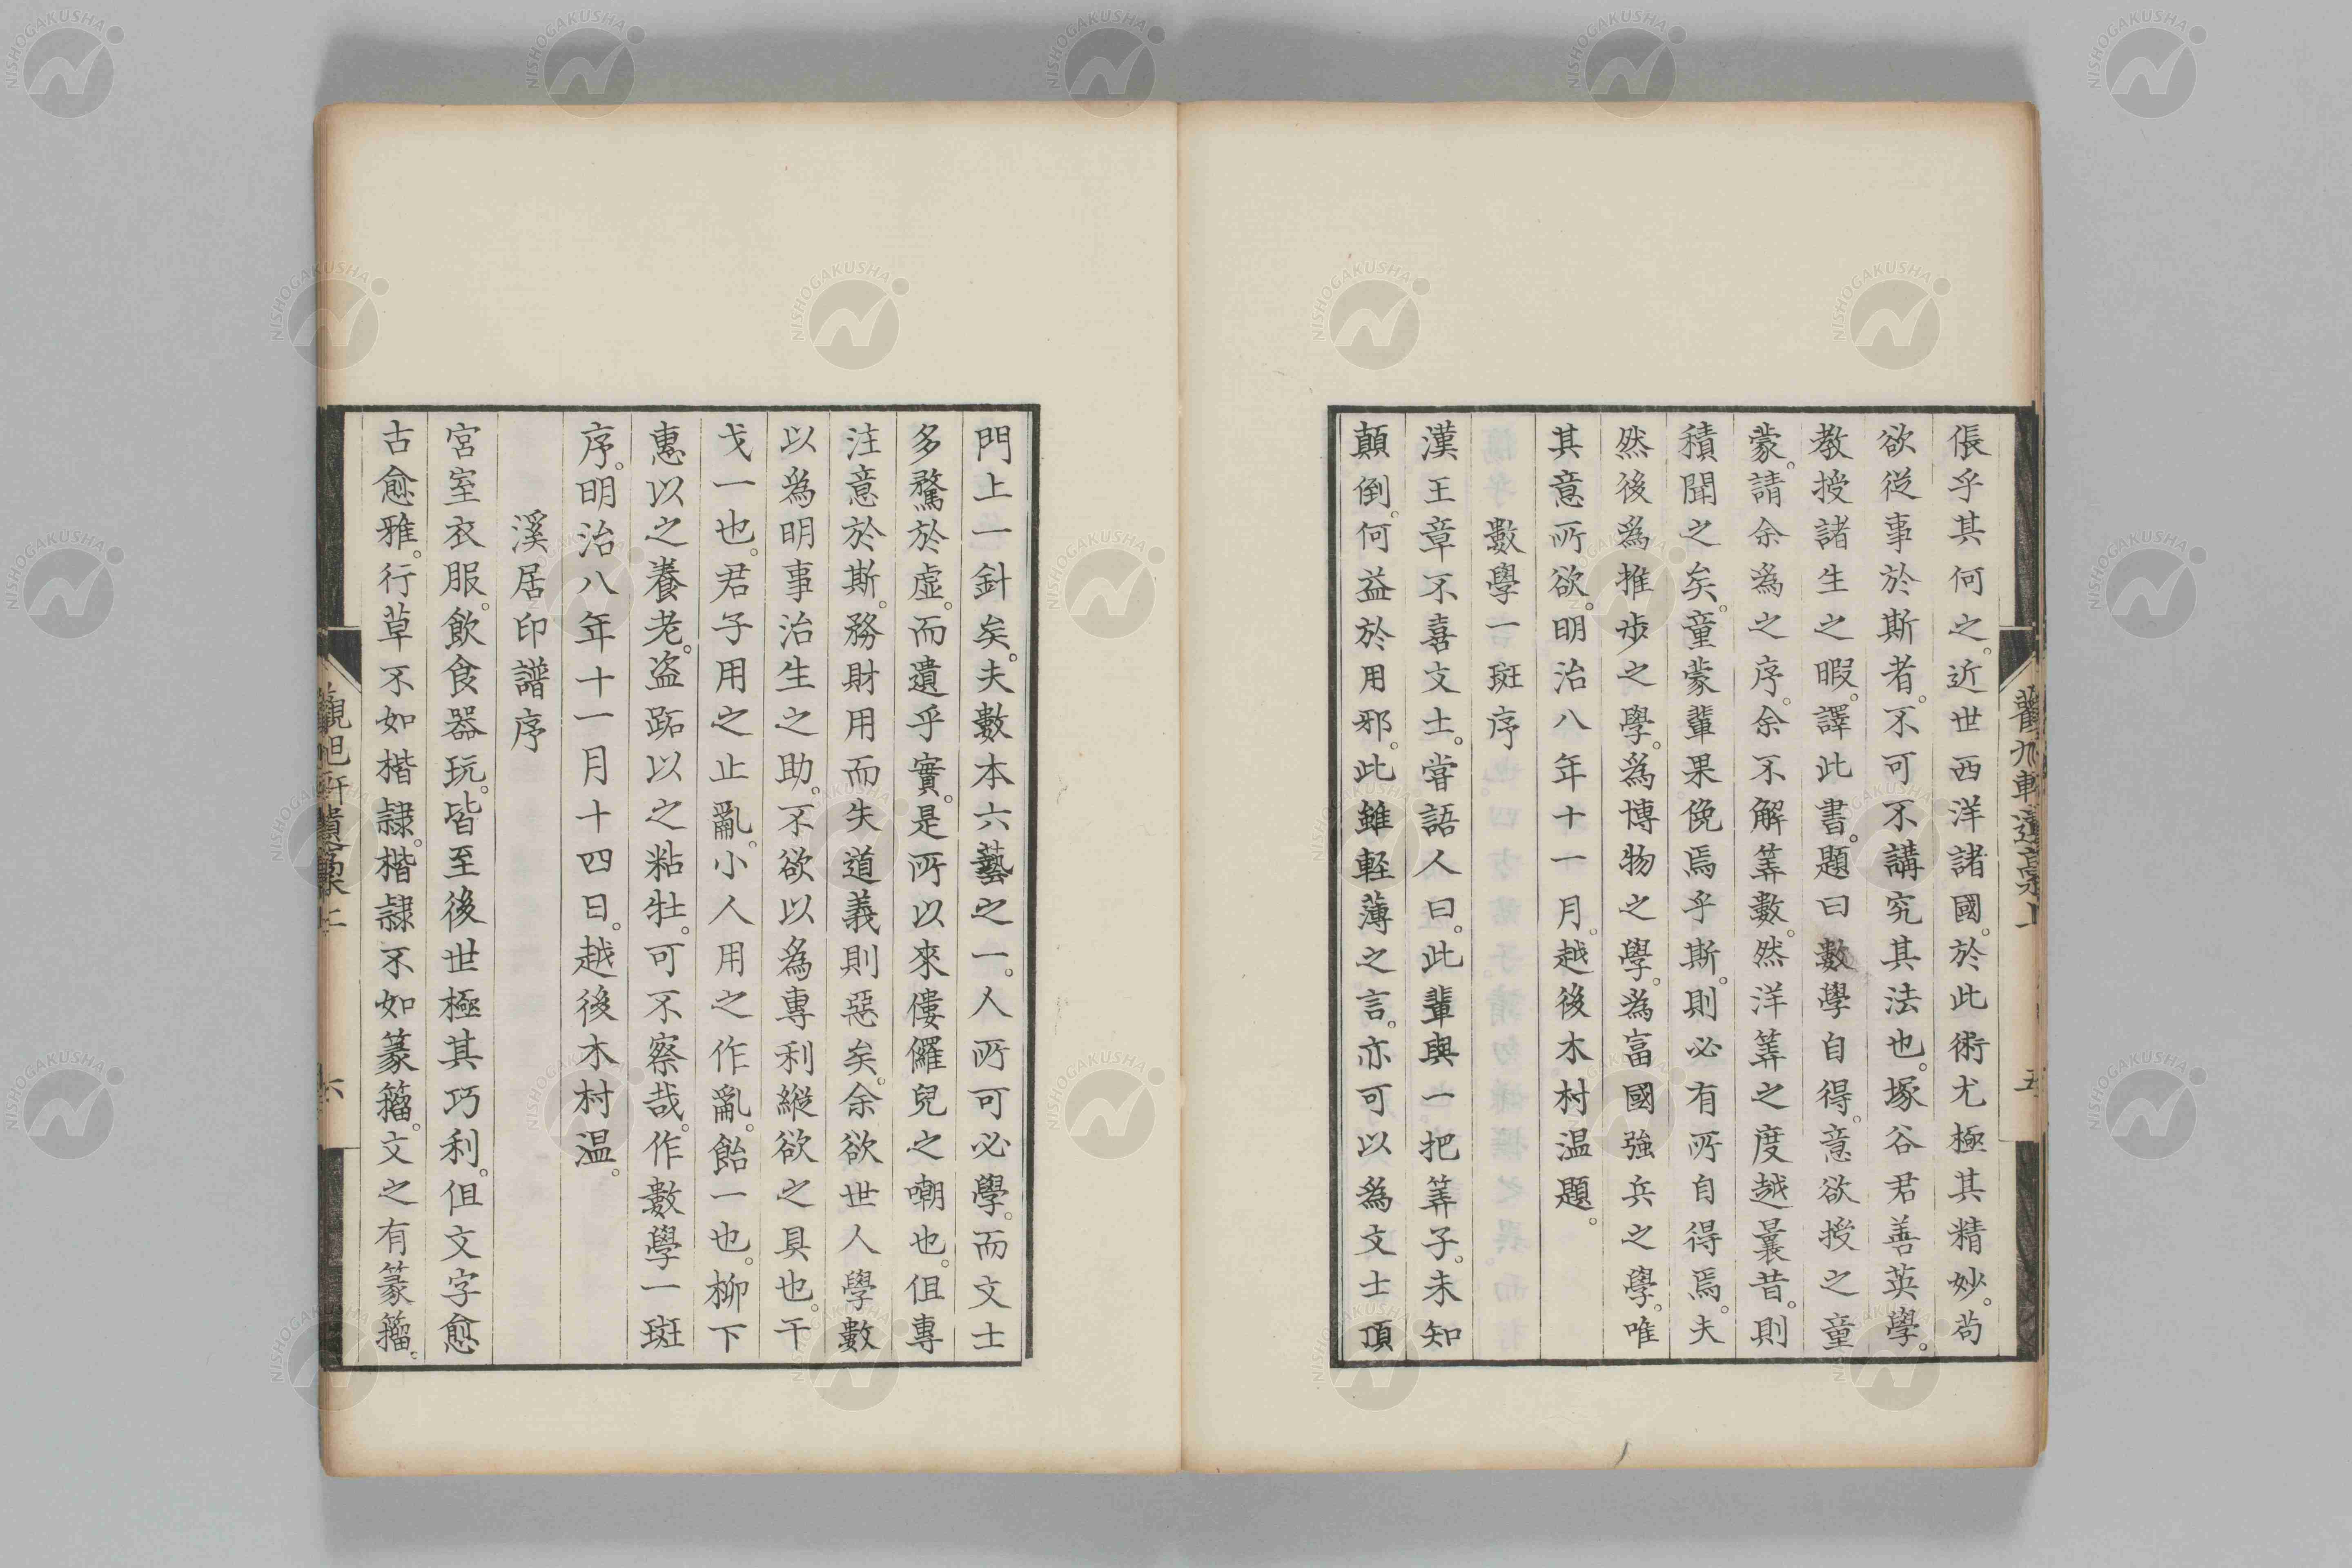 倀乎其何之。近世西洋諸國。於此術尤極其精妙。苟
欲從事於斯者。不可不講究其法也。塚谷君善英學。
教授諸生之暇。譯此書。題曰數學自得。意欲授之童
蒙。請余爲之序。余不解筭數。然洋筭之度越曩昔。則
積聞之矣。童蒙輩果俛焉乎斯。則必有所自得焉。夫
然後爲推步之學。爲博物之學。爲富國強兵之學。唯
其意所欲。明治八年十一月。越後木村温題。
數學一斑序
漢王章不喜文士。嘗語人曰。此輩與一把筭子。未知
顛倒。何益於用邪。此雖輕薄之言。亦可以爲文士頂
門上一針矣。夫數本六藝之一。人所可必學。而文士
多騖於虛。而遺乎實。是所以來僂儸兒之嘲也。但專
注意於斯。務財用而失道義則惡矣。余欲世人學數
以爲明事治生之助。不欲以爲專利縱欲之具也。干
戈一也。君子用之止亂。小人用之作亂。飴一也。柳下
惠以之養老。盜跖以之粘牡。可不察哉。作數學一斑
序。明治八年十一月十四日。越後木村温。
溪居印譜序
宮室衣服。飲食器玩。皆至後世極其巧利。但文字愈
古愈雅。行草不如楷隷。楷隷不如篆籀。文之有篆籀。
NISHOGAKUSHA